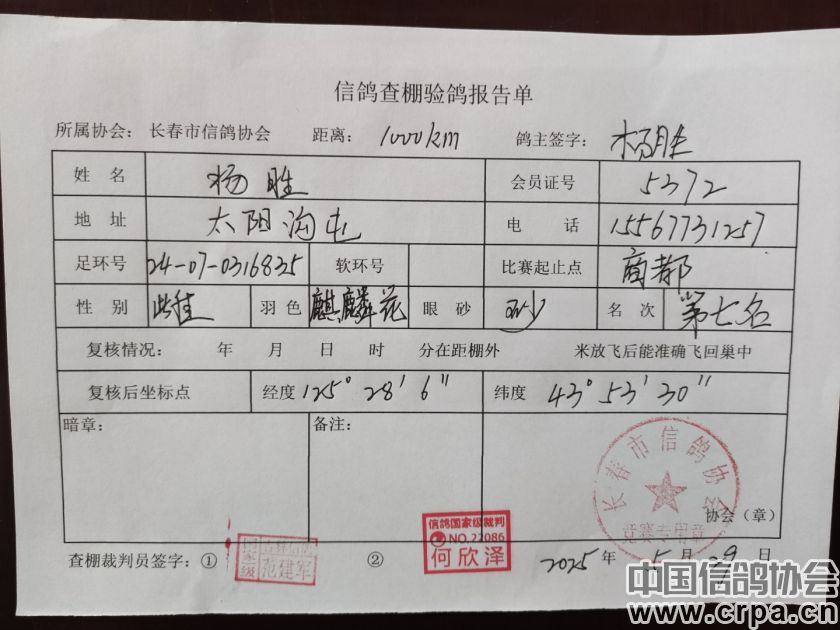 信鸽查棚验鸽报告单
所属协会: 长春市信鸽协会 距离: 1000km 鸽主签字: 杨胜
姓名 杨胜 会员证号 5372
地址 太阳沟屯 电话 15567731257
足环号 24-07-0316835 软环号 比赛起止点 商都
性别 雌 羽色 麒麟花 眼砂 砂 名次 第七名
复核情况: 年 月 日 时 分在距棚外 米放飞后能准确飞回巢中
复核后坐标点 经度 125° 28′ 6″ 纬度 43° 53′ 30″
暗章: 备注:
长春市信鸽协会
竞赛专用章
协会(章)
信鸽国家级裁判
NO.22086
何欣泽
范建军
查棚裁判员签字: ① ② 2025 年 5 月 29 日
中国信鸽协会
www.crpa.cn